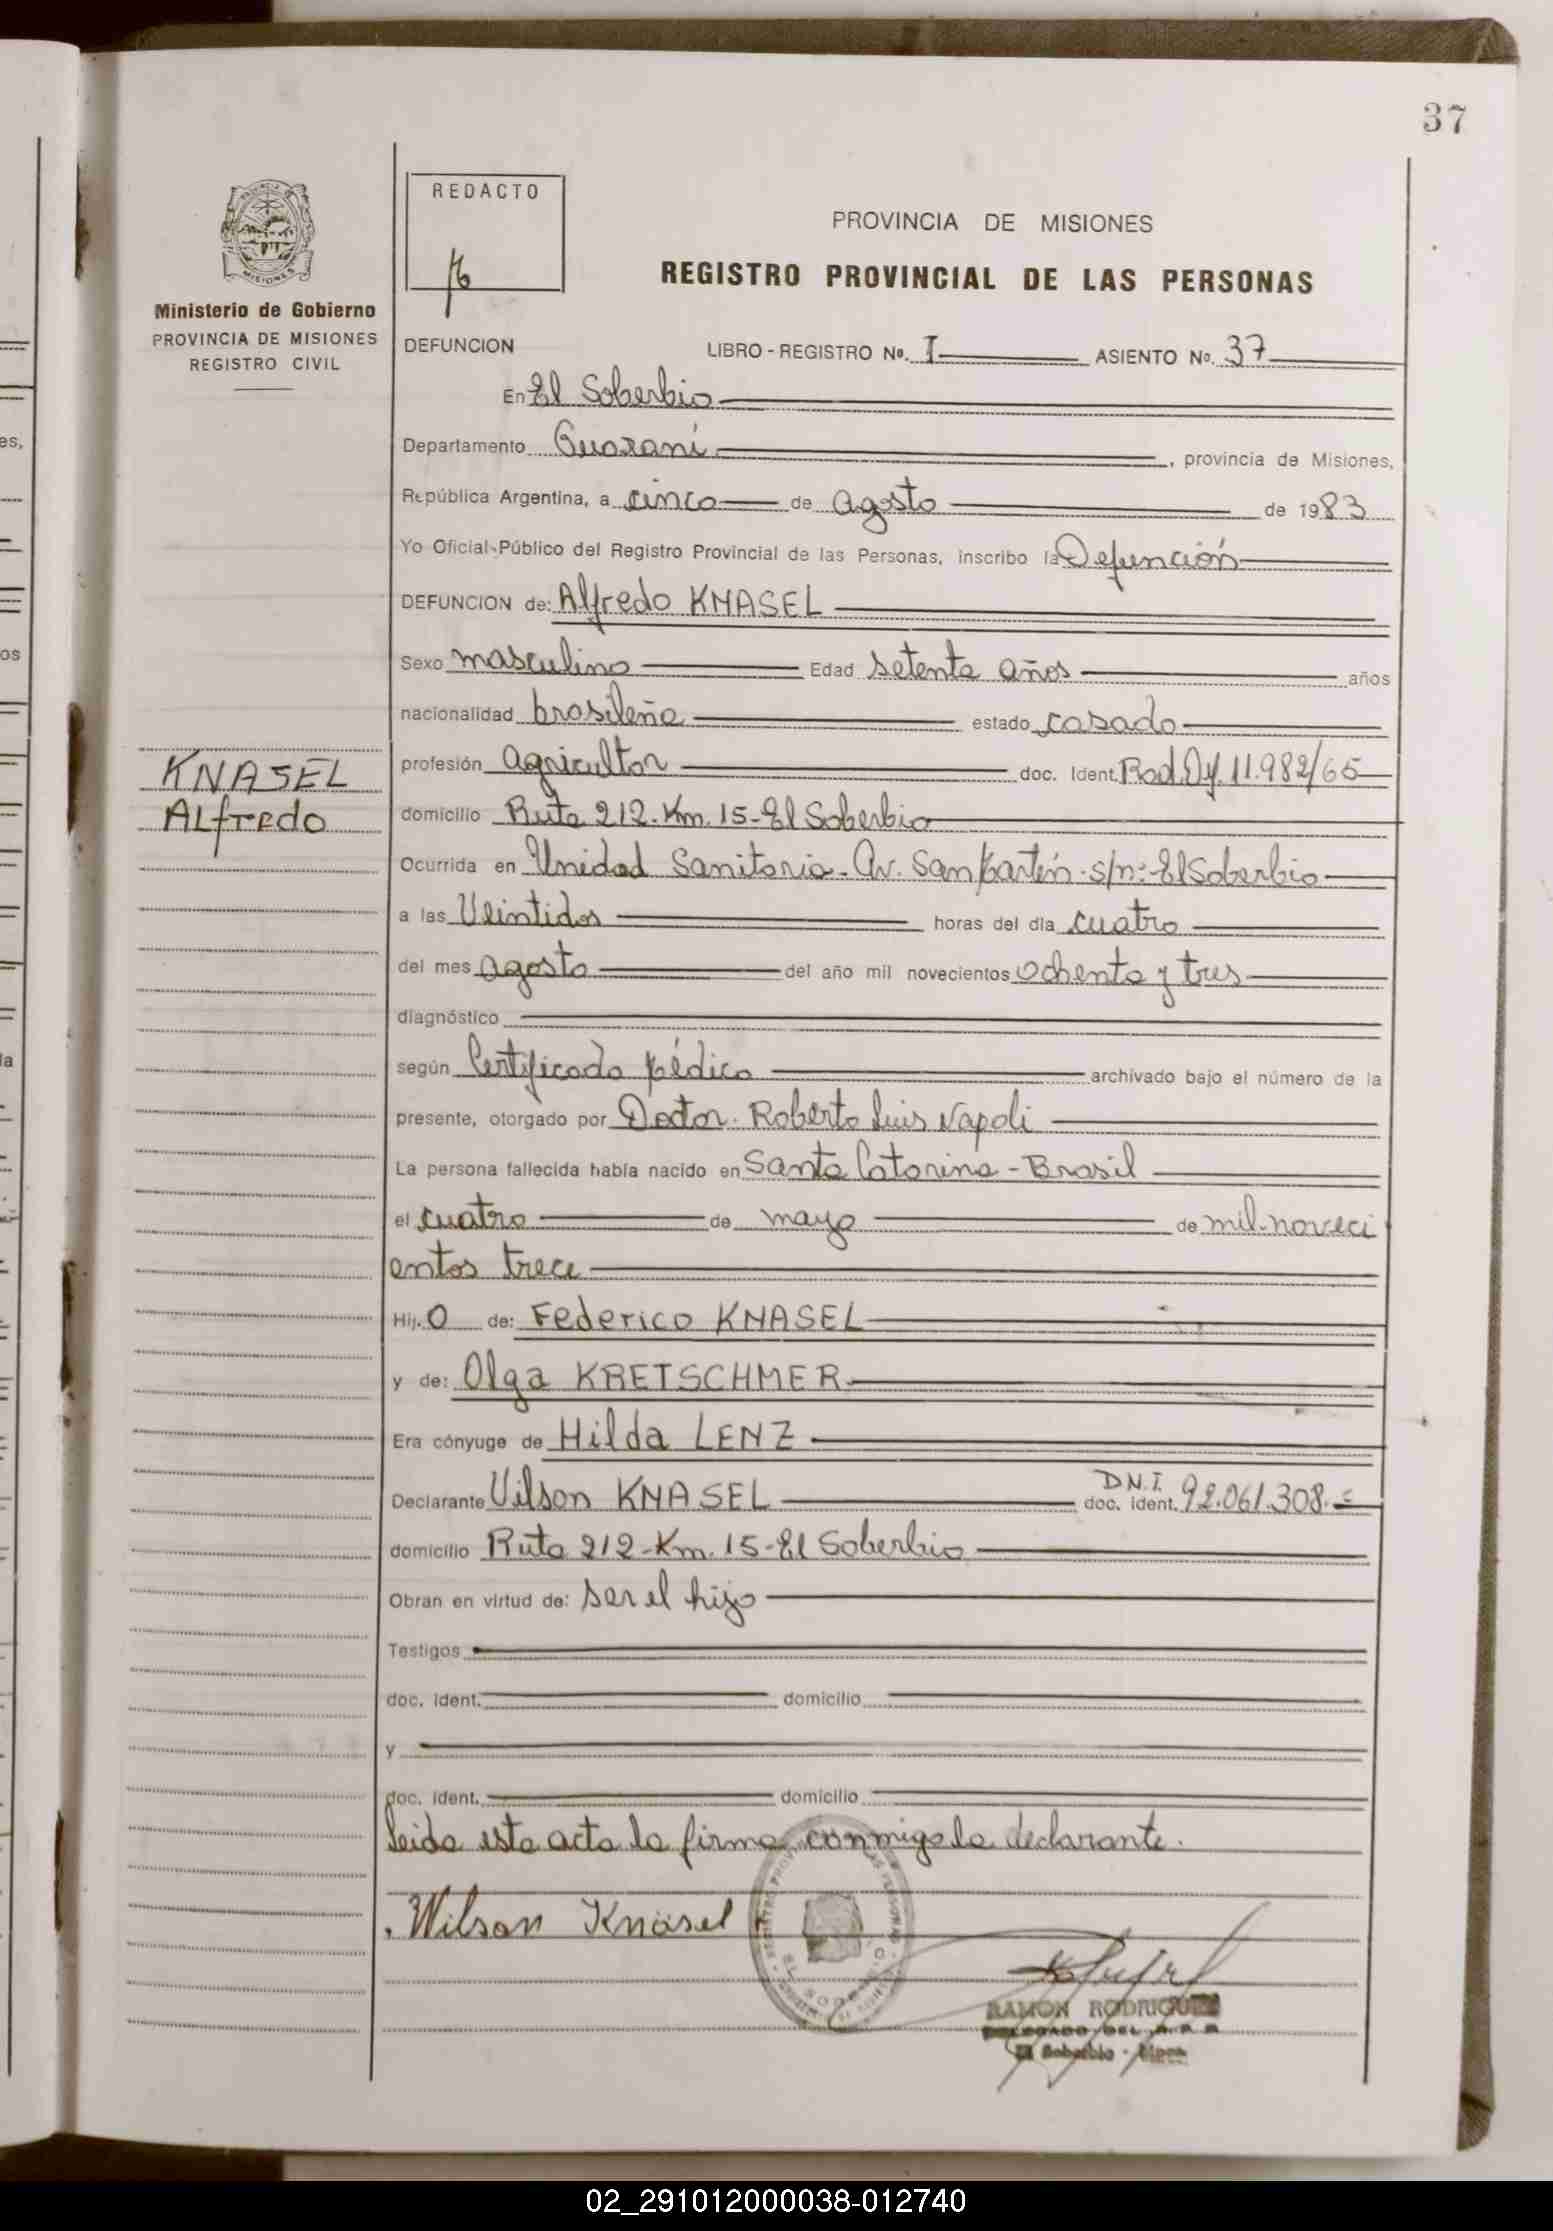 37
REDACTO
PROVINCIA DE MISIONES
REGISTRO PROVINCIAL DE LAS PERSONAS
MISIONES
Ministerio de Gobierno
PROVINCIA DE MISIONES
REGISTRO CIVIL
DEFUNCION LIBRO - REGISTRO Nº. I ASIENTO Nº. 37
En El Soberbio
Departamento Guaraní, provincia de Misiones,
República Argentina, a cinco de Agosto de 1983
Yo Oficial Público del Registro Provincial de las Personas, inscribo la Defunción
DEFUNCION de: Alfredo KNASEL
Sexo masculino Edad setenta años años
nacionalidad brasileña estado casado
KNASEL
Alfredo
profesión Agricultor doc. Ident. Rad.Dy.11.982/65
domicilio Ruta 212-Km.15-El Soberbio
Ocurrida en Unidad Sanitaria-Av. San Martín-s/n:-El Soberbio
a las Veintidos horas del día cuatro
del mes Agosto del año mil novecientos ochenta y tres
diagnóstico
según Certificado Médico archivado bajo el número de la
presente, otorgado por Doctor. Roberto Luis Napoli
La persona fallecida había nacido en Santa Catarina - Brasil
el cuatro de mayo de mil-noveci
entos trece
Hij.o de: Federico KNASEL
y de: Olga KRETSCHMER
Era cónyuge de Hilda LENZ
Declarante Vilson KNASEL D.N.I. doc. ident. 92.061.308.=
domicilio Ruta 212-Km.15-El Soberbio
Obran en virtud de: ser el hijo
Testigos
doc. ident. domicilio
y
doc. ident. domicilio
Leída esta acta la firma conmigo la declarante.
Wilson Knäsel
RAMON RODRIGUEZ
DELEGADO DEL R.P.P.
El Soberbio - Mnes
02_291012000038-012740